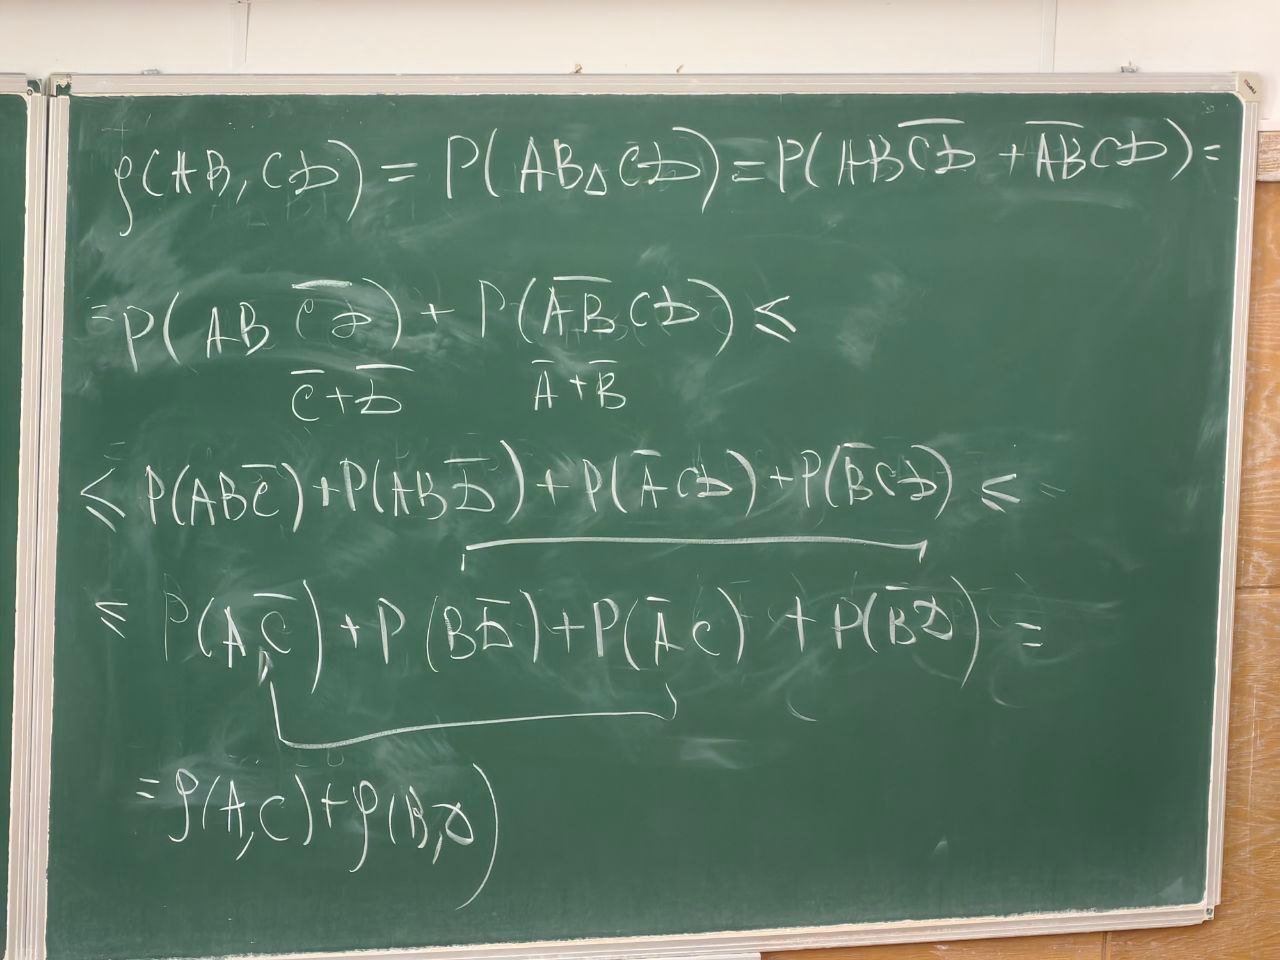 ρ(AB, CD) = P(AB △ CD) = P(AB\overline{CD} + \overline{AB}CD) =
= P(AB \overline{CD}) + P(\overline{AB} CD) ≤
\overline{C} + \overline{D} \overline{A} + \overline{B}
≤ P(AB\overline{C}) + P(AB\overline{D}) + P(\overline{A}CD) + P(\overline{B}CD) ≤
≤ P(A\overline{C}) + P(B\overline{D}) + P(\overline{A}C) + P(\overline{B}D) =
= ρ(A,C) + ρ(B,D)